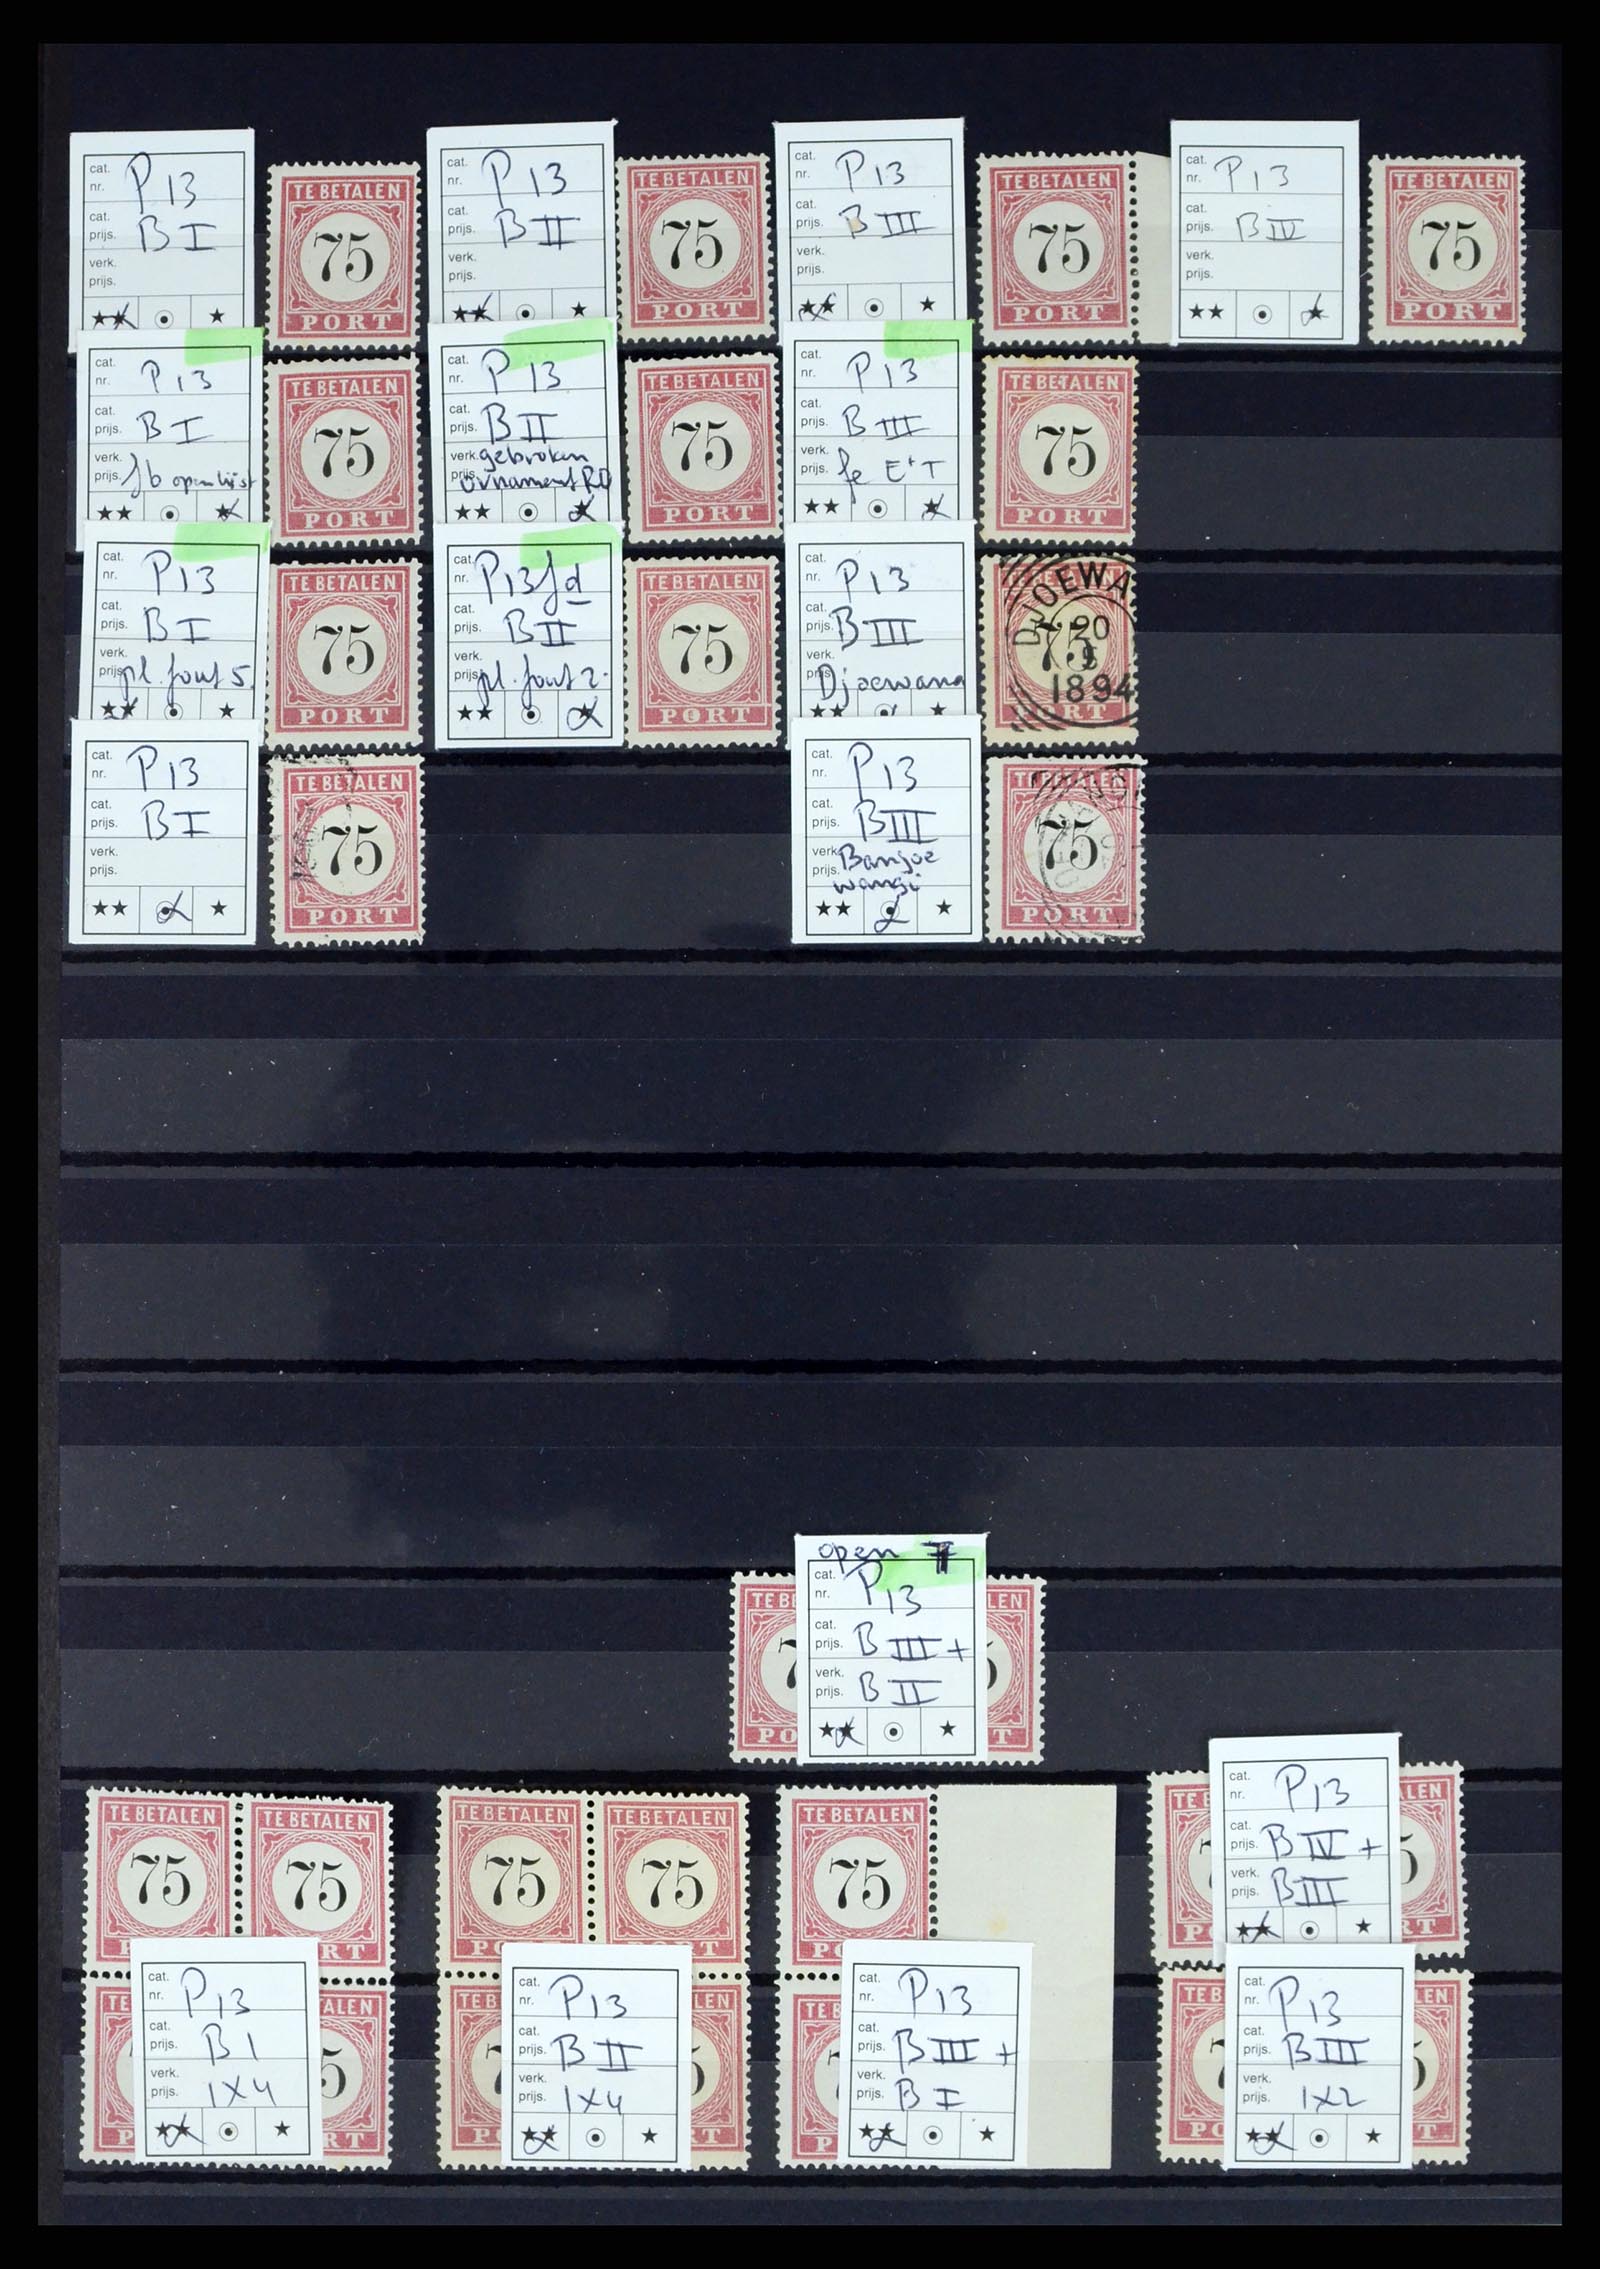 cat. nr. P13
cat. prijs. B I
verk. prijs.
★★ ★
TE BETALEN
75
PORT
cat. nr. P13
cat. prijs. B II
★★ ★
TE BETALEN
75
PORT
cat. nr. P13
cat. prijs. B III
verk. prijs.
★★ ★
TE BETALEN
75
PORT
cat. nr. P13
cat. prijs. B IV
verk. prijs.
★★ ★
TE BETALEN
75
PORT
cat. nr. P13
cat. prijs. B I
verk. prijs. fb open lijst
★★ ★
TE BETALEN
75
PORT
cat. nr. P13
cat. prijs. B II
verk. gebroken
prijs. ornament RO
★★ ★
TE BETALEN
75
PORT
cat. nr. P13
cat. prijs. B III
verk. prijs. fe E+T
★★ ★
TE BETALEN
75
PORT
cat. nr. P13
cat. prijs. B I
verk. prijs. pl. fout 5.
★★ ★
TE BETALEN
75
PORT
cat. nr. P13fd
cat. prijs. B II
verk. prijs. pl. fout 2.
★★ ★
TE BETALEN
75
PORT
cat. nr. P13
cat. prijs. B III
verk. prijs. Djoewana
★★ ★
DJOEWA
20
75
1894
cat. nr. P13
cat. prijs. B I
verk. prijs.
★★ ★
TE BETALEN
75
PORT
cat. nr. P13
cat. prijs. B III
verk. prijs. Banjoe
wangi
★★ ★
TE BETALEN
75
PORT
open T
cat. nr. P13
cat. prijs. B III +
verk. prijs. B II
★★ ★
TE BE LEN
7 5
PO T
cat. nr. P13
cat. prijs. B IV +
verk. prijs. B III
★★ ★
ALEN
TE BETALEN TE BETALEN
75 75
P RT
cat. nr. P13
cat. prijs. B I
verk. prijs. 1X4
★★ ★
TE TALEN
5
P RT
TE BETALEN TE BETALEN
75 75
PO RT
cat. nr. P13
cat. prijs. B II
verk. prijs. 1X4
★★ ★
TE B LEN
P RT
TE BETALEN
75
PO
cat. nr. P13
cat. prijs. B III +
verk. prijs. B I
★★ ★
TE B
7
P
cat. nr. P13
cat. prijs. B III
verk. prijs. 1X2
★★ ★
TE B ALEN
7 5
PO RT